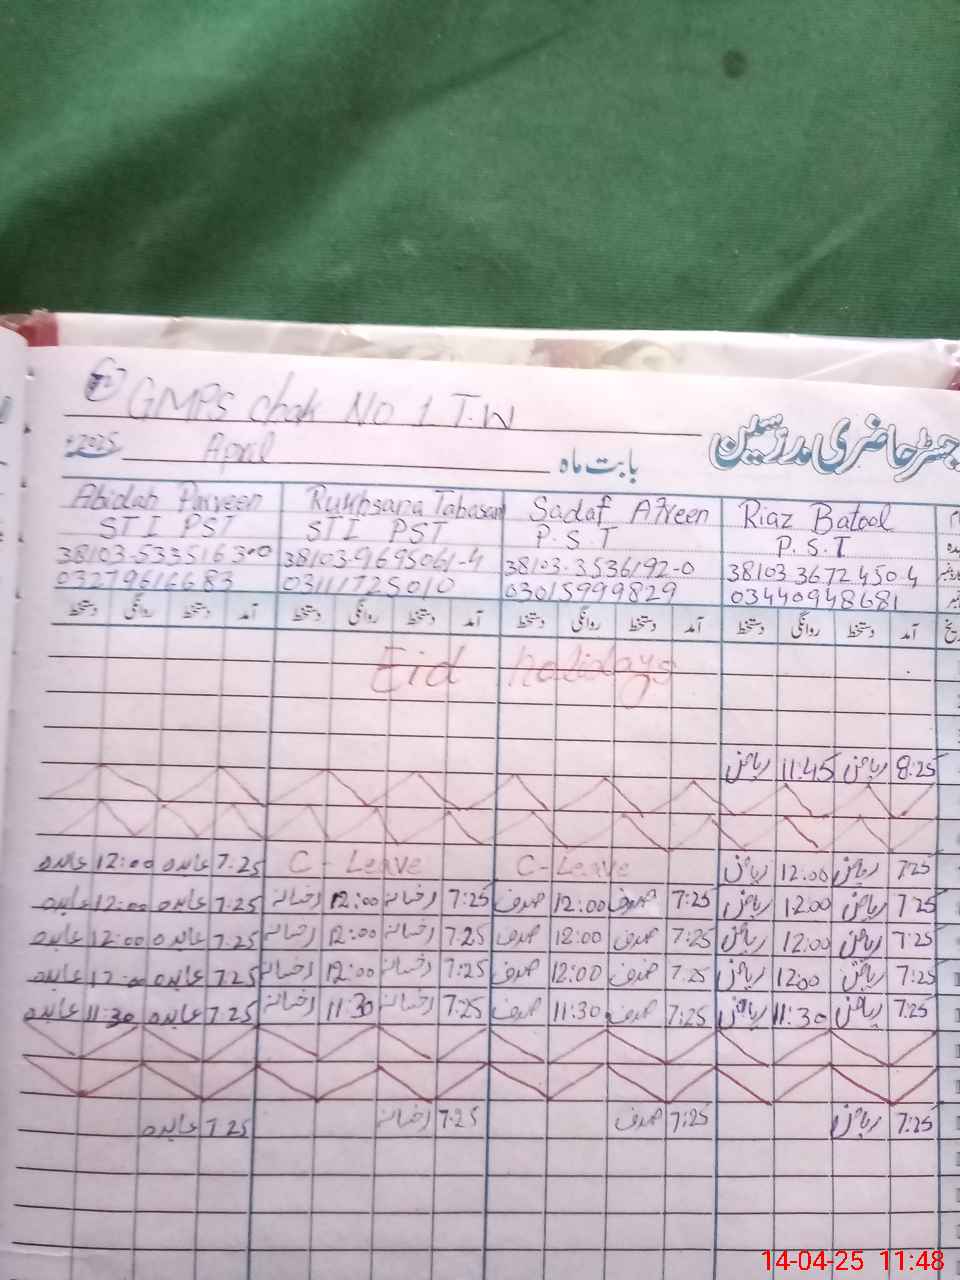 GMPS chak No 1 T.W
رجسٹر حاضری مدرسین
2025 April بابت ماہ
Abidah Parveen Rukhsana Tabasam Sadaf Afreen Riaz Batool
STI PST STI PST P.S.T P.S.T
38103-5335163-0 38103-9695061-4 38103-3536192-0 38103 3672450-4
03279616683 03111725010 03015999829 03440948681
دستخط روانگی دستخط آمد دستخط روانگی دستخط آمد دستخط روانگی دستخط آمد دستخط روانگی دستخط آمد
Eid holidays
ریاض 11:45 ریاض 8:25
عابدہ 12:00 عابدہ 7.25 C-Leave C-Leave ریاض 12:00 ریاض 7:25
عابدہ 12:00 عابدہ 7.25 رخسانہ 12:00 رخسانہ 7:25 صدف 12:00 صدف 7:25 ریاض 12:00 ریاض 7:25
عابدہ 12:00 عابدہ 7.25 رخسانہ 12:00 رخسانہ 7.25 صدف 12:00 صدف 7:25 ریاض 12:00 ریاض 7:25
عابدہ 12:00 عابدہ 7.25 رخسانہ 12:00 رخسانہ 7:25 صدف 12:00 صدف 7.25 ریاض 12:00 ریاض 7:25
عابدہ 11:30 عابدہ 7.25 رخسانہ 11:30 رخسانہ 7:25 صدف 11:30 صدف 7:25 ریاض 11:30 ریاض 7.25
عابدہ 7.25 رخسانہ 7.25 صدف 7:25 ریاض 7:25
14-04-25 11:48